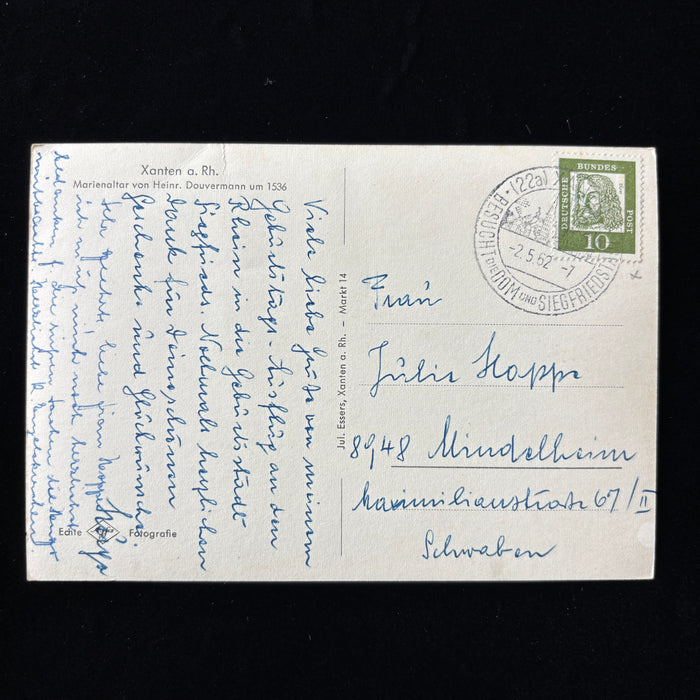 Xanten a. Rh.
Marienaltar von Heinr. Douvermann um 1536
Viele liebe Grüße von meinem
Geburtstags-Ausflug an den
Rhein in die Geburtsstadt
Siegfrieds. Nochmals herzlichen
Dank für Deine schönen
Geschenke und Glückwünsche.
Sehr geehrte, liebe Frau Hoppe
ich mich noch herzlichst
Echte Fotografie
Jul. Essers, Xanten a. Rh. – Markt 14
(22a) X
BESUCHT DIE DOM UND SIEGFRIEDST
-2.5.62-7
DEUTSCHE BUNDES POST
10
Frau
Julie Hoppe
8948 Mindelheim
Maximilianstraße 67/II
Schwaben